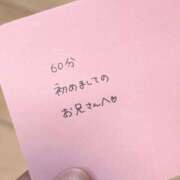 60分
初めましての
お兄さんへ♡